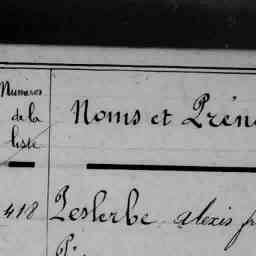 Numéros
de la
liste
Noms et Prén
418 Leslerbe alexis fr